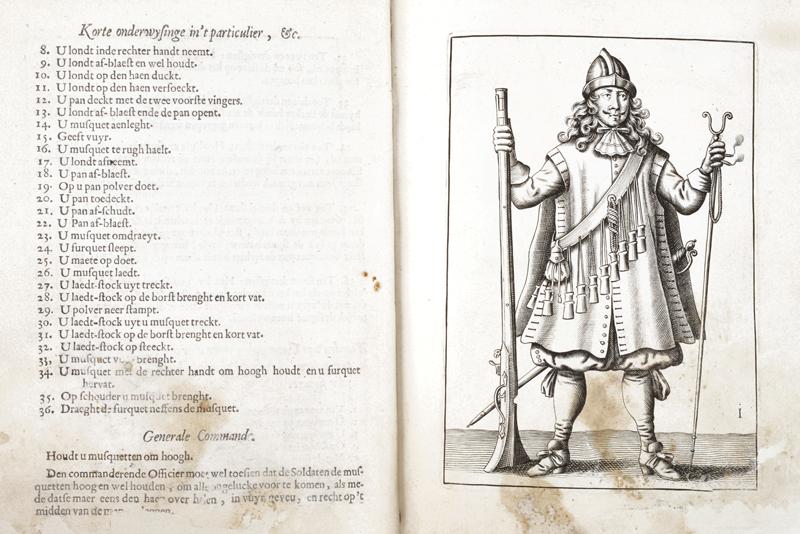 Korte onderwysinge in't particulier, &c.
8. U londt inde rechter handt neemt.
9. U londt af-blaest en wel houdt.
10. U londt op den haen duckt.
11. U londt op den haen versoeckt.
12. U pan deckt met de twee voorste vingers.
13. U londt af-blaest ende de pan opent.
14. U musquet aenleght.
15. Geeft vuyr.
16. U musquet te rugh haelt.
17. U londt afneemt.
18. U pan af-blaest.
19. Op u pan polver doet.
20. U pan toedeckt.
21. U pan af-schudt.
22. U Pan af-blaest.
23. U musquet omdraeyt.
24. U furquet sleept.
25. U maete op doet.
26. U musquet laedt.
27. U laedt-stock uyt treckt.
28. U laedt-stock op de borst brenght en kort vat.
29. U polver neer stampt.
30. U laedt-stock uyt u musquet treckt.
31. U laedt-stock op de borst brenght en kort vat.
32. U laedt-stock op steeckt.
33, U musquet brenght.
34. U musquet met de rechter handt om hoogh houdt en u furquet
hervat.
35. Op schouder u musquet brenght.
36. Draeght de furquet neffens de musquet.
Generale Command.
Houdt u musquetten om hoogh.
Den commanderende Officier moet wel toesien dat de Soldaten de mus-
quetten hoog en wel houden, om alle ongelucke voor te komen, als me-
de datse maer eens den haen over halen, in vuyr geven, en recht op 't
midden van de
1